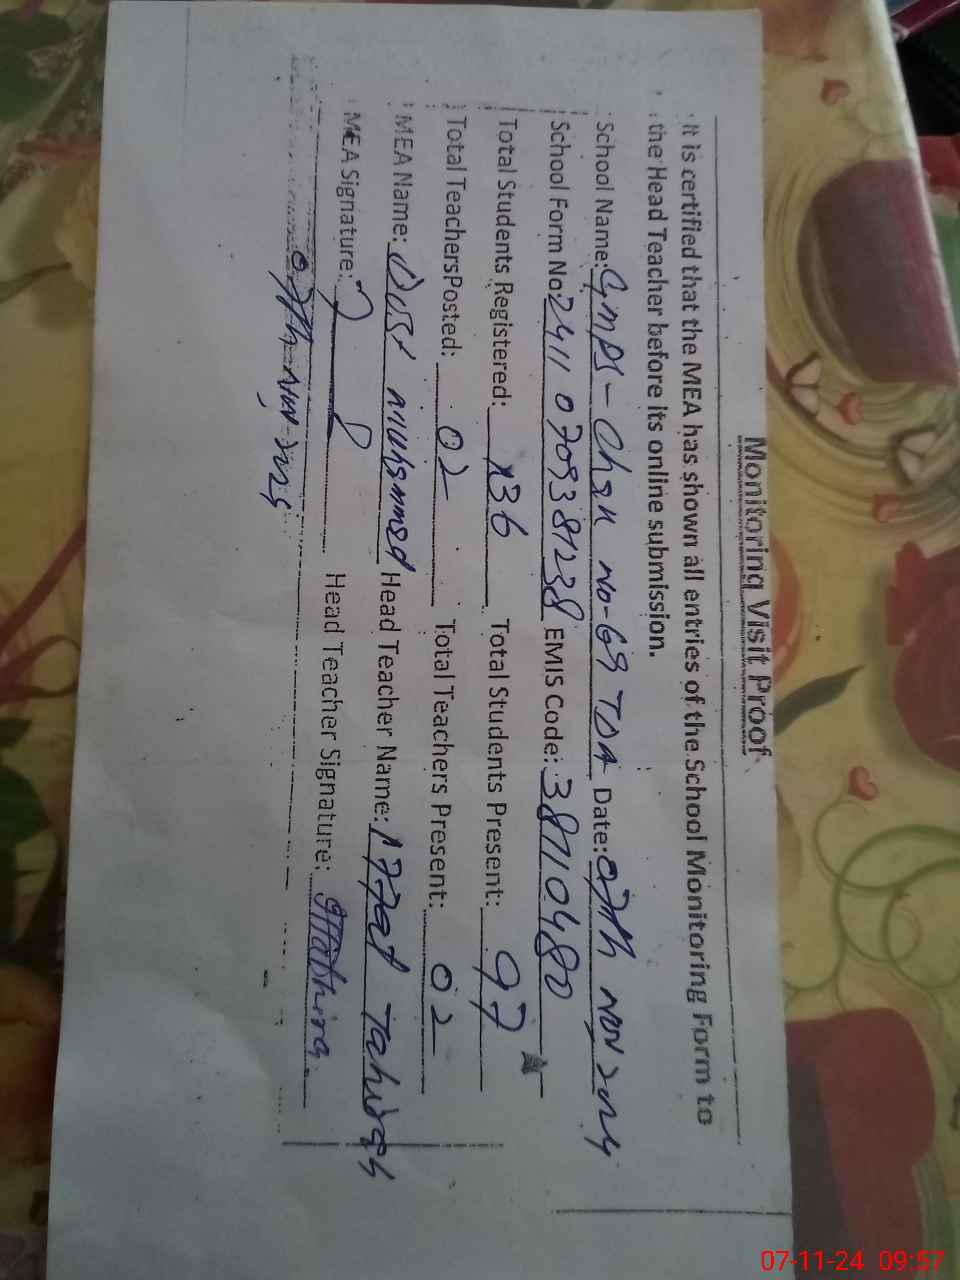 Monitoring Visit Proof
It is certified that the MEA has shown all entries of the School Monitoring Form to
the Head Teacher before its online submission.
School Name: GMPS - Chak No-69 TDA Date: 07th Nov 2024
School Form No 2411 0709381238 EMIS Code: 38110480
Total Students Registered: 136 Total Students Present: 97
Total Teachers Posted: 02 Total Teachers Present: 02
MEA Name: Dost Muhammad Head Teacher Name: Iffat Tahira
MEA Signature: Head Teacher Signature:
07th Nov-2024
07-11-24 09:57